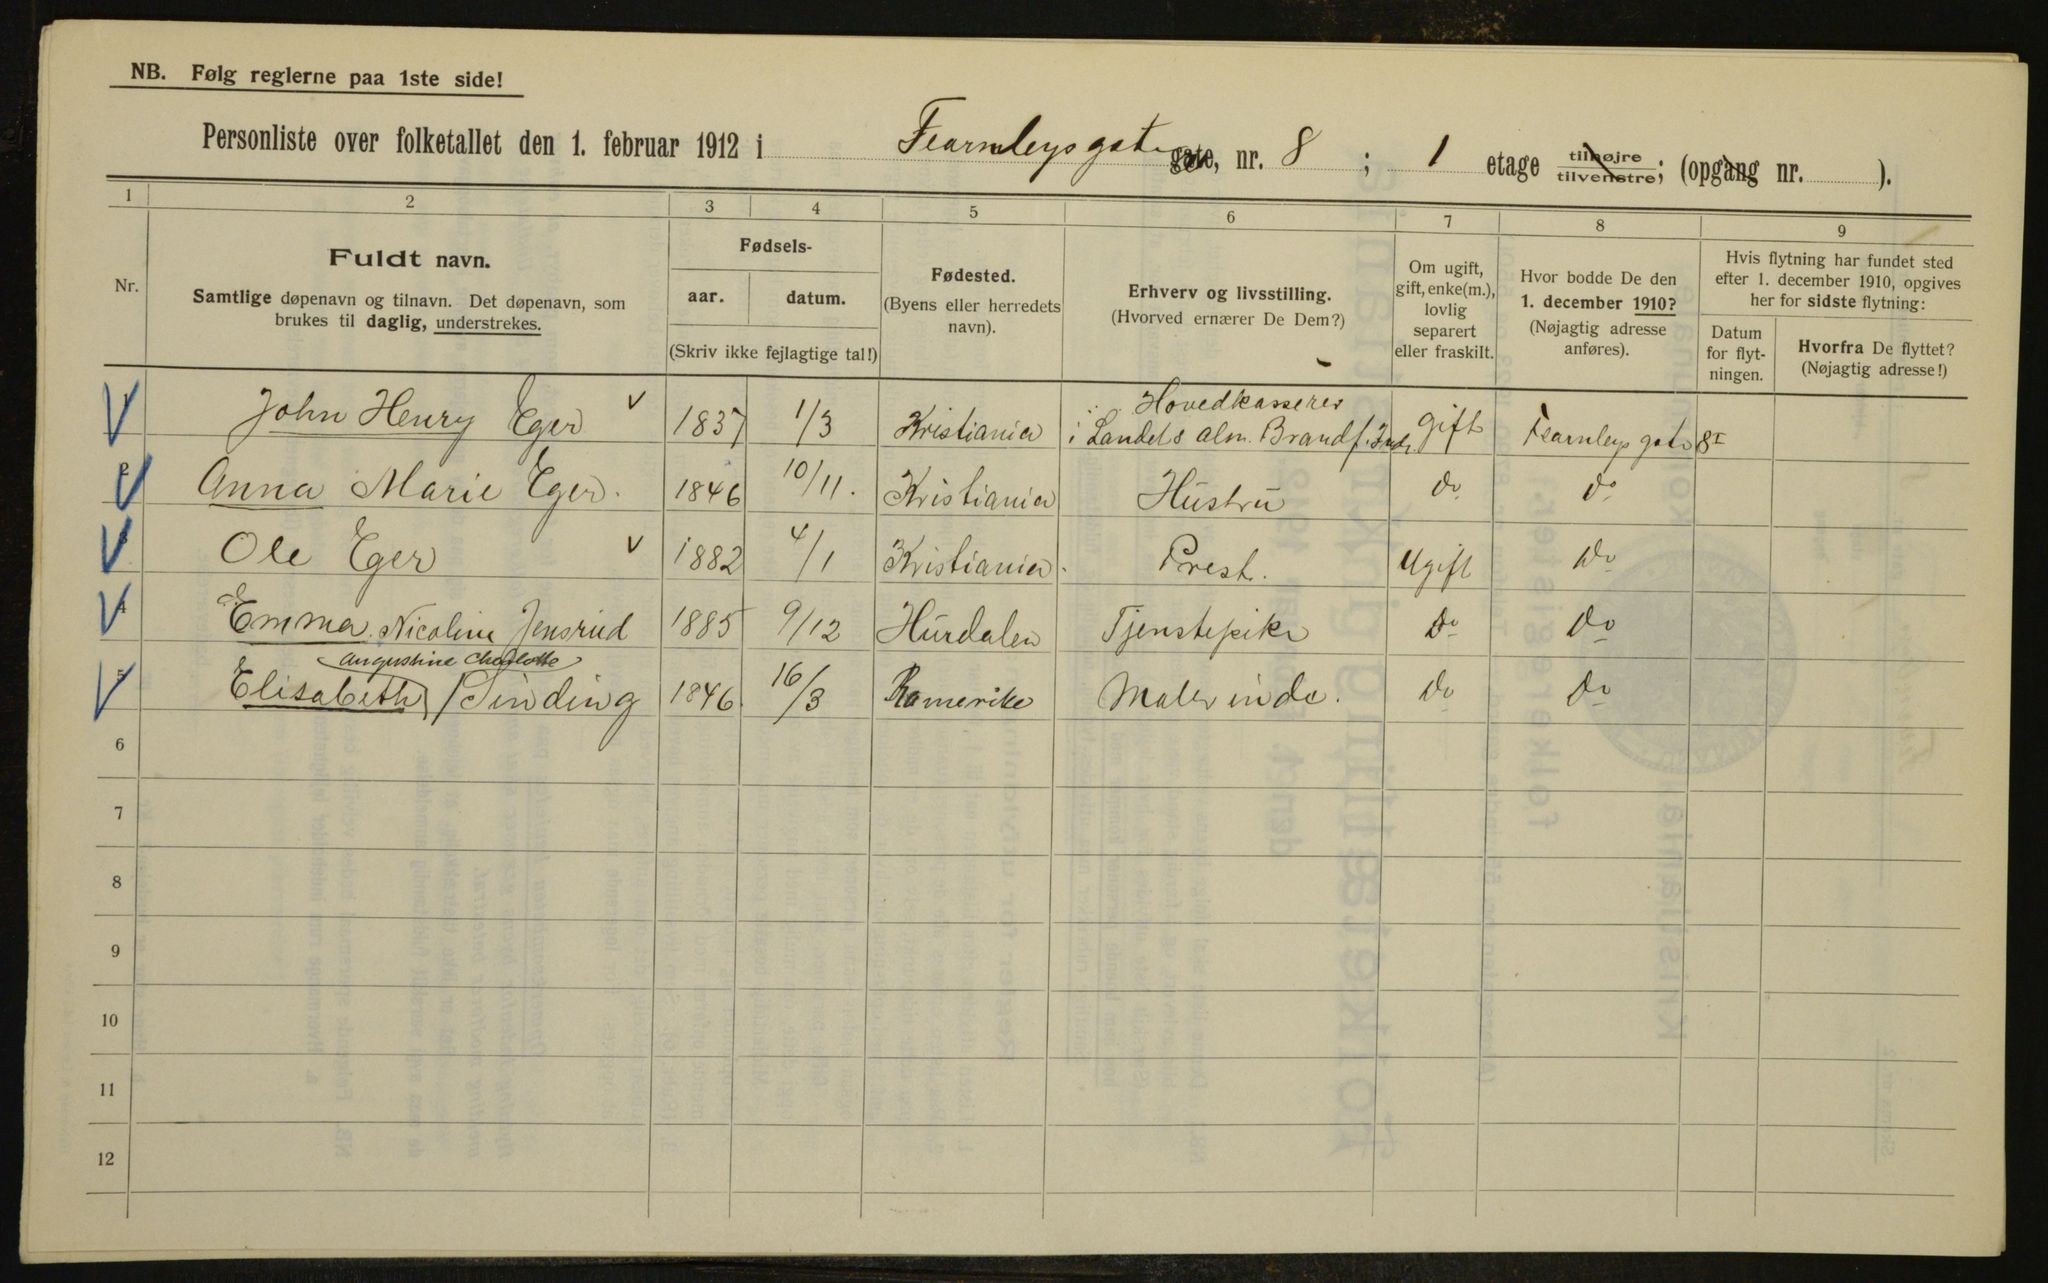 NB. Følg reglerne paa 1ste side!
Personliste over folketallet den 1. februar 1912 i Fearnleysgate gate, nr. 8 ; 1 etage tilhøjre tilvenstre; (opgang nr. ).
1 2 3 4 5 6 7 8 9
Nr.
Fuldt navn.
Samtlige døpenavn og tilnavn. Det døpenavn, som
brukes til daglig, understrekes.
Fødsels-
aar. datum.
(Skriv ikke fejlagtige tal!)
Fødested.
(Byens eller herredets
navn).
Erhverv og livsstilling.
(Hvorved ernærer De Dem?)
Om ugift,
gift, enke(m.),
lovlig
separert
eller fraskilt.
Hvor bodde De den
1. december 1910?
(Nøjagtig adresse
anføres).
Hvis flytning har fundet sted
efter 1. december 1910, opgives
her for sidste flytning:
Datum
for flyt-
ningen.
Hvorfra De flyttet?
(Nøjagtig adresse!)
Hovedkasserer
1 John Henry Eger 1837 1/3 Kristiania i Landets alm. Brandf. Indr. gift Fearnleys gate 8 I
2 Anna Marie Eger. 1846 10/11. Kristiania Hustru do do
3 Ole Eger 1882 4/1 Kristiania. Prest. Ugift do
4 Emma Nicoline Jensrud 1885 9/12 Hurdalen Tjenstepike do do
Augustine Charlotte
5 Elisabeth Sinding 1846. 16/3 Romerike Malerinde. do do
6
7
8
9
10
11
12